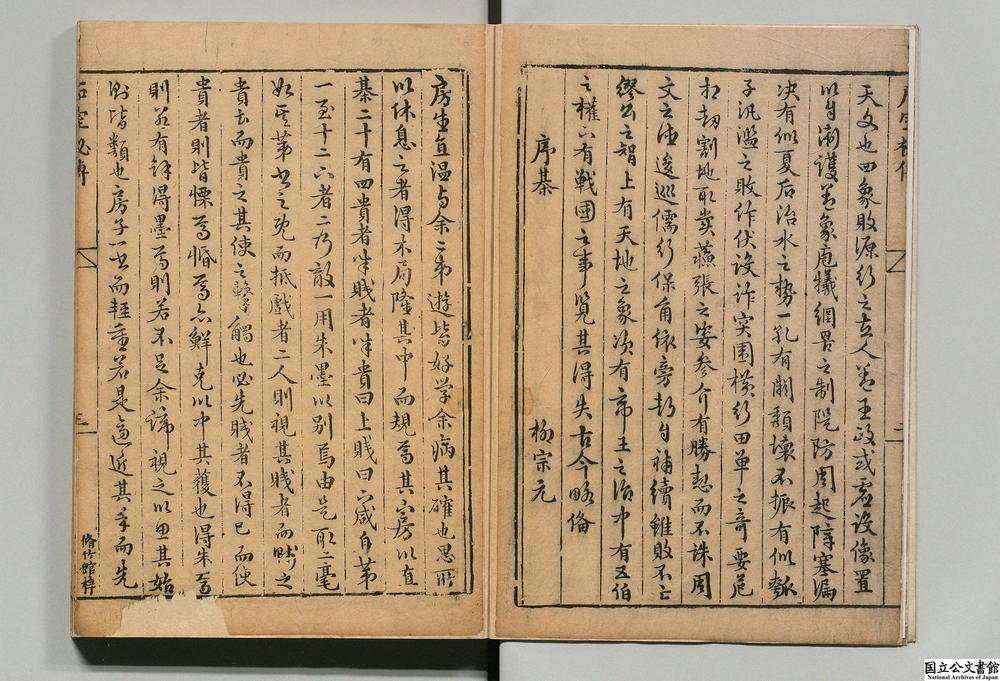 天文也四象敗源行之古人差王政或虛設像置
以自衞護差象庖犧網罟之制隄防周起障塞漏
决有似夏后治水之勢一孔有闕頽壞不振有似瓠
子汎濫之敗作伏設詐突围横行田單之奇要厄
相刧割地取賞蘇張之姿参介有勝恕而不誅周
文之德逡巡儒行保角依旁却自補續雖敗不亡
繆公之智上有天地之象次有帝王之治中有五伯
之權下有戰國之事覽其得失古今略備
序棊
柳宗元
房生直温与余二弟遊皆好学余病其確也思所
以休息之者得木局隆其中而規焉其下方以直
棊二十有四貴者半賤者半貴曰上賤曰下咸自第
一至十二下者二乃敵一用朱墨以别焉由是取二毫
如其第书之既而抵戲者二人則視其賤者而賤之
貴者而貴之其使之擊觸也必先賤者不得已而使
貴者則皆慄焉惛焉亦鮮克以中其獲也得朱焉
則若有餘得墨焉則若不足余諦視之以思其始
則皆類也房子一书而輕重若是適近其手而先
石室秘傳
二
三
脩竹館梓
国立公文書館
National Archives of Japan